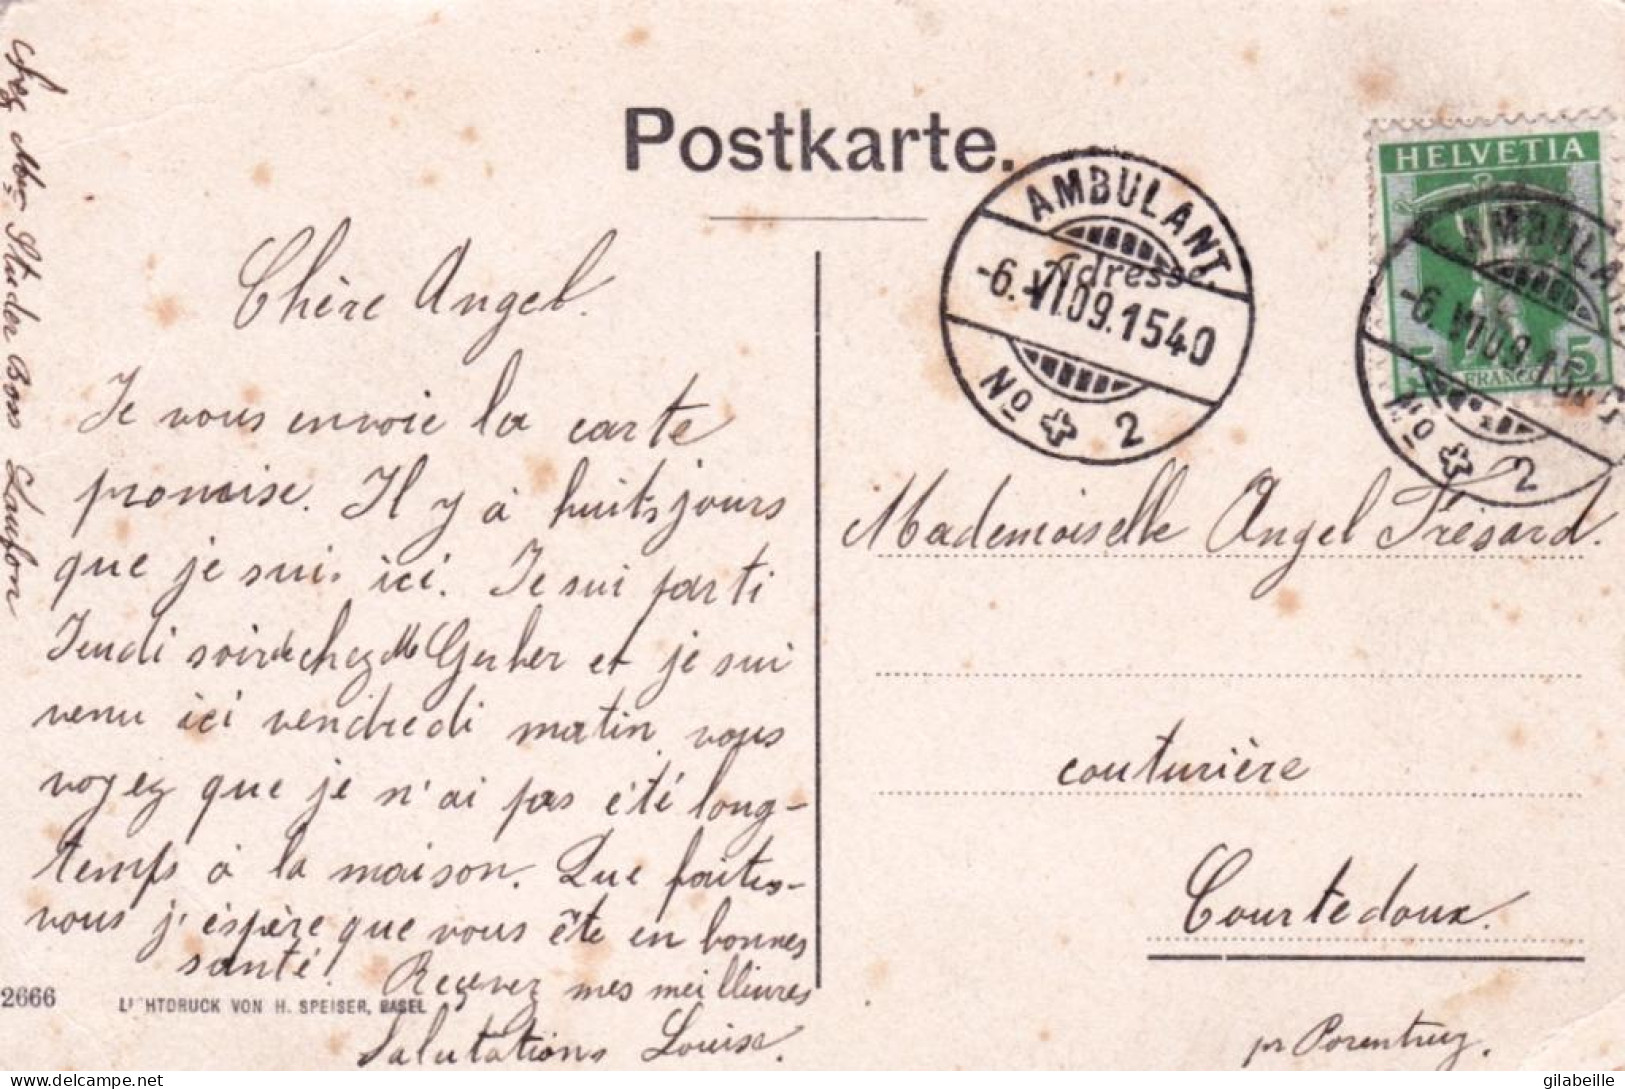 Postkarte.
Adresse
AMBULANT.
-6.VI.09.1540
No 2
HELVETIA
5
FRANCO
AMBULANT
-6.VI09.15
No 2
chez Mr Studer Boss Laufon
Chère Angel.
Je vous envoie la carte
promise. Il y à huits jours
que je suis ici. Je sui parti
Jeudi soir de chez Mlle Gerber et je sui
venu ici vendredi matin vous
voyez que je n'ai pas été long-
temps à la maison. Que faites-
vous j'éspère que vous ête en bonnes
santé! Reçever mes meilleures
Salutations Louise.
Mademoiselle Angel Trésard.
couturière
Courtedoux.
pr Porentruy.
2666
LICHTDRUCK VON H. SPEISER, BASEL
delcampe.net
gilabeille